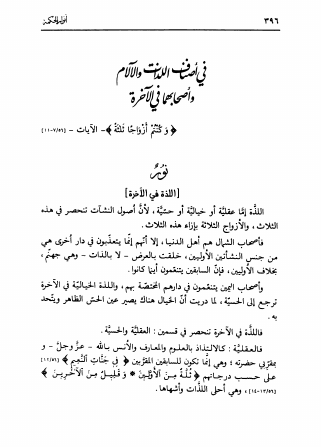 ٣٩٦
أصول الحكمة
في أصناف اللذات والآلام
وأصحابهما في الآخرة
﴿ وَكُنتُمْ أَزْوَاجًا ثَلَاثَةً ﴾ - الآيات - [٧/٥٦-١١]
نورٌ
[اللذة في الآخرة]
اللذّة إمّا عقليّة أو خياليّة أو حسّيّة، لأنّ أصول النشآت تنحصر في هذه
الثلاث، والأزواج الثلاثة بإزاء هذه الثلاث.
فأصحاب الشمال هم أهل الدنيا، إلا أنّهم إنّما يتعذّبون في دار أخرى هي
من جنس النشأتين الأوليين، خلقت بالعرض - لا بالذات - وهي جهنّم،
بخلاف الأوليين، فإنّ السابقين يتنعّمون أينما كانوا.
وأصحاب اليمين يتنعّمون في دارهم المختصّة بهم، واللذة الخياليّة في الآخرة
ترجع إلى الحسيّة، لما دريت أنّ الخيال هناك يصير عين الحسّ الظاهر ويتّحد
به.
فاللذّة في الآخرة تنحصر في قسمين: العقليّة والحسيّة.
فالعقليّة: كالالتذاذ بالعلوم والمعارف والأنس بالله - عزّ وجلّ - و
بمقرّبي حضرته؛ وهي إنّما تكون للسابقين المقرّبين ﴿ فِي جَنَّاتِ النَّعِيمِ ﴾ [١٢/٥٦]
على حسب درجاتهم ﴿ ثُلَّةٌ مِنَ الْأَوَّلِينَ * وَقَلِيلٌ مِنَ الْآخَرِينَ ﴾
[١٣/٥٦-١٤]، وهي أحلى اللذات وأشهاها.